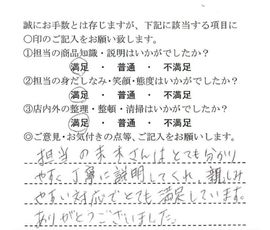 誠にお手数とは存じますが、下記に該当する項目に
○印のご記入をお願い致します。
①担当の商品知識・説明はいかがでしたか?
満足 ・ 普通 ・ 不満足
②担当の身だしなみ・笑顔・態度はいかがでしたか?
満足 ・ 普通 ・ 不満足
③店内外の整理・整頓・清掃はいかがでしたか?
満足 ・ 普通 ・ 不満足
◎ご意見・お気付きの点等、ご記入をお願いします。
担当の未木さんはとても分かり
やすく丁寧に説明してくれ、親しみ
やすい対応でとても満足しています。
ありがとうございました。